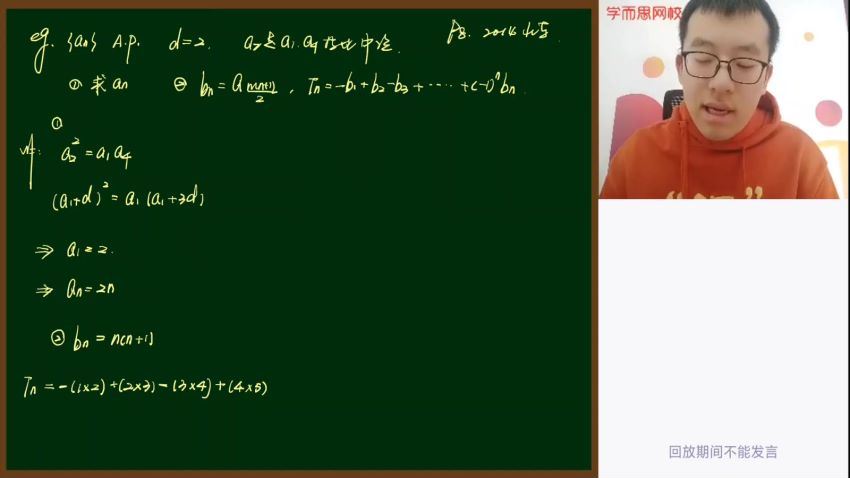 eg. {an} A.p. d=2. a2是a1.a4等比中项.
① 求an ② bn = a n(n+1)/2 , Tn = -b1+b2-b3+……+(-1)^n bn .
①
a2² = a1 a4
(a1+d)² = a1 (a1+3d)
⇒ a1 = 2.
⇒ an = 2n
② bn = n(n+1)
Tn = -(1×2)+(2×3)-(3×4)+(4×5)
学而思网校
回放期间不能发言